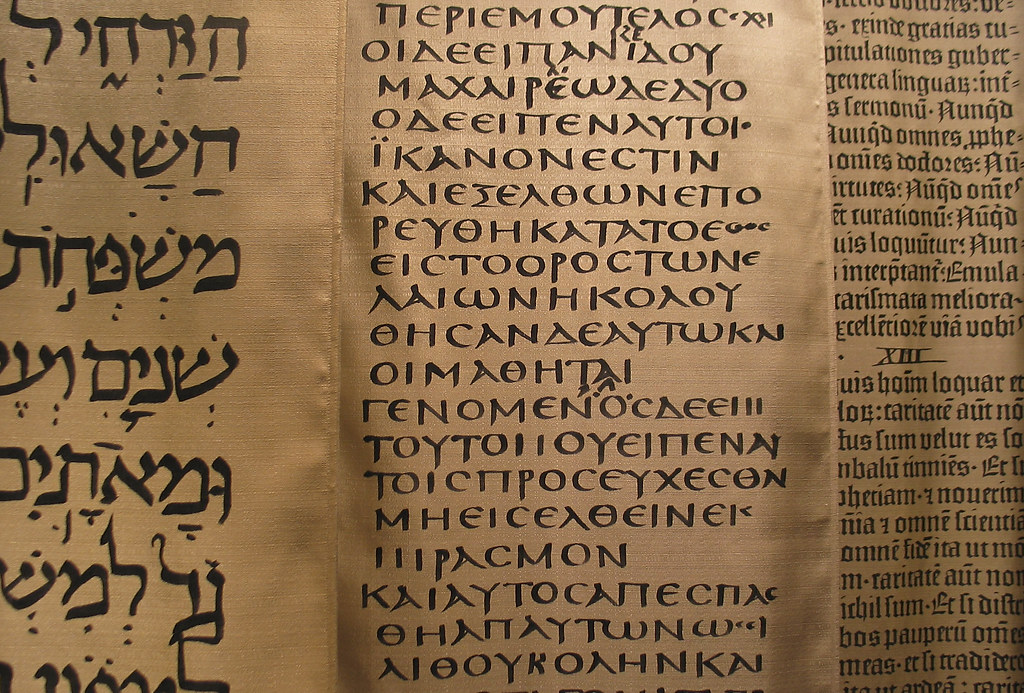 הַזַּרְחִי לְ
הַשָּׁאוּל
מִשְׁפְּחֹת
שְׁנַיִם וְעֶשׂ
וּמָאתָיִם
גָד לְמִשׁ
ΠΕΡΙΕΜΟΥΤΕΛΟΣ·ΧΡΙ
ΟΙΔΕΕΙΠΑΝΙΔΟΥ
ΜΑΧΑΙΡΕΩΔΕΔΥΟ
ΟΔΕΕΙΠΕΝΑΥΤΟΙ·
ΪΚΑΝΟΝΕΣΤΙΝ
ΚΑΙΕΞΕΛΘΩΝΕΠΟ
ΡΕΥΘΗΚΑΤΑΤΟΕΘΟΣ
ΕΙΣΤΟΟΡΟΣΤΩΝΕ
ΛΑΙΩΝΗΚΟΛΟΥ
ΘΗΣΑΝΔΕΑΥΤΩΚΑΙ
ΟΙΜΑΘΗΤΑΙ
ΓΕΝΟΜΕΝΟΣΔΕΕΠΙ
ΤΟΥΤΟΠΟΥΕΙΠΕΝΑΥ
ΤΟΙΣΠΡΟΣΕΥΧΕΣΘΑΙ
ΜΗΕΙΣΕΛΘΕΙΝΕΙΣ
ΠΙΡΑΣΜΟΝ
ΚΑΙΑΥΤΟΣΑΠΕΣΠΑΣ
ΘΗΑΠΑΥΤΩΝΩΣΙ
ΛΙΘΟΥΒΟΛΗΝΚΑΙ
s. exinde gratias cu-
pitulationes guber-
genera linguaꝝ: int-
s sermonū. Nunqd
Nunqd omnes pphe-
omēs doctores: Nū-
irtutes: Nūqd omēs
et curationū: Nūqd
uis loquūtur: Nun-
interptant: Emula
carismata meliora-
xcellētiorē viā vobis
XIII
uis hoim loquar et
loꝝ: caritatē aūt nō
ctus sum velut es so
mbalū tinniēs. Et si
phetiam. ⁊ nouerim
mīa ⁊ omnē scientiā
omnē fidē ita ut mō
m. caritatē aūt non
ichil sum. Et si distr
bos pauperū omēs
meas. et si tradidero
ita ut ardeā: carita